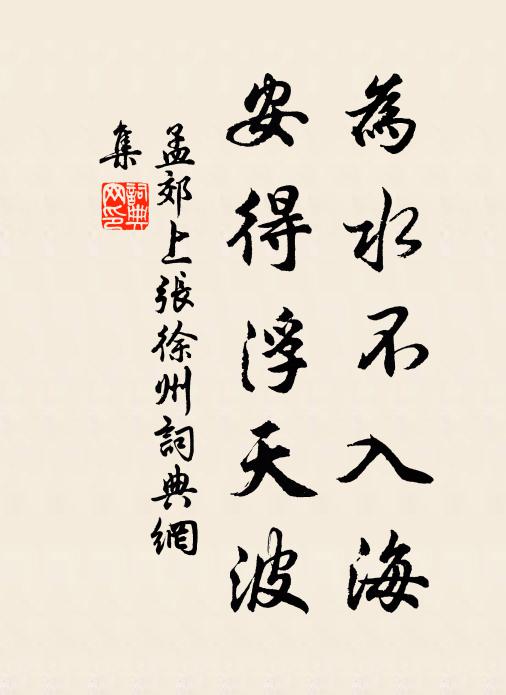 為水不入海
安得浮天波
孟郊上張徐州詞典網
集
詞典
网印